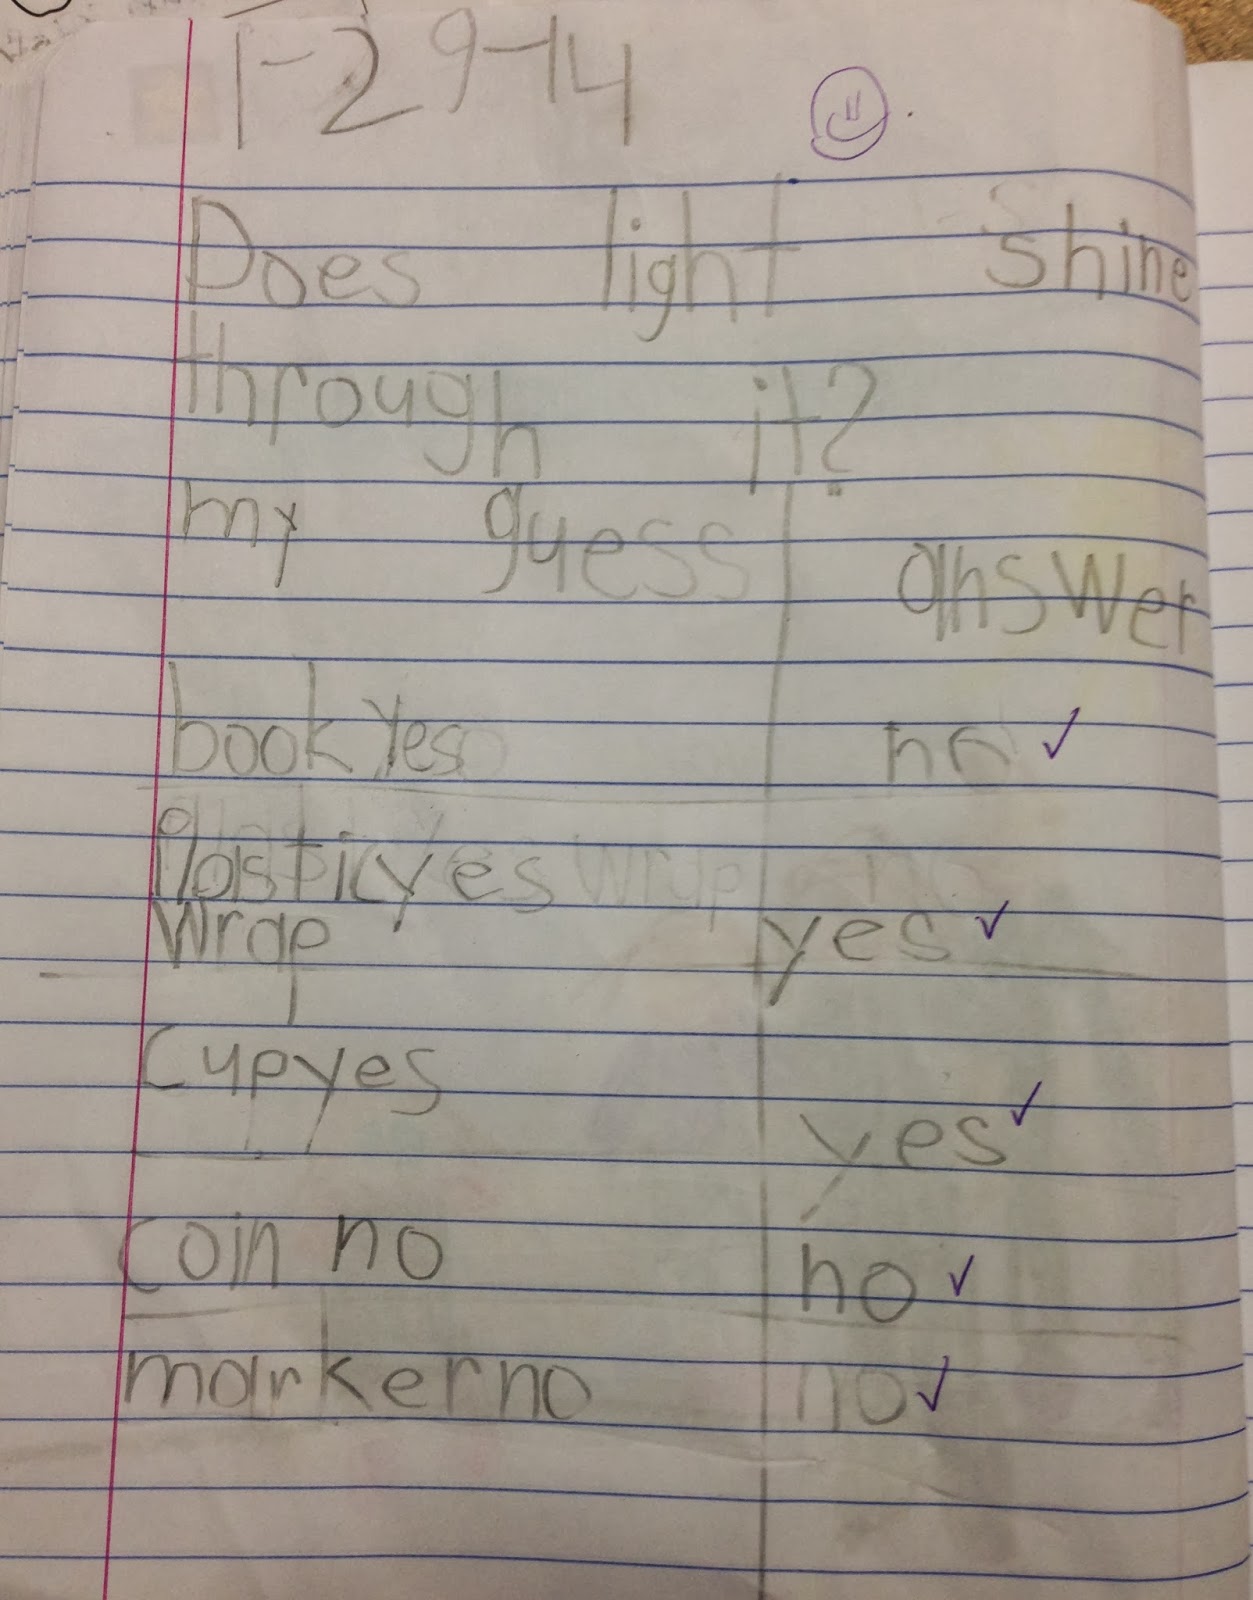 1-29-14
Does light shine
through it?
my guess answer
book yes no ✓
Plastic yes
wrap yes ✓
Cup yes
yes ✓
coin no no ✓
marker no no ✓